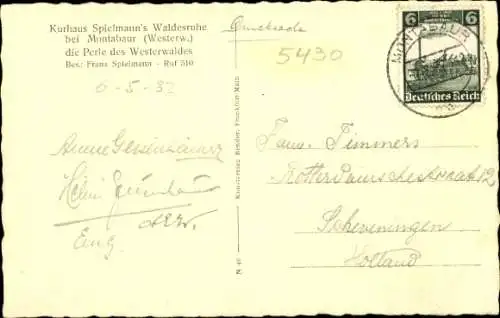 Kurhaus Spielmann's Waldesruhe
bei Montabaur (Westerw.)
die Perle des Westerwaldes
Bes.: Franz Spielmann - Ruf 510
Drucksache
5430
6 6
Deutsches Reich
MONTABAUR
Kunstverlag Frankfurt-Main
N 46
Fam. Timmers
Rotterdamschestraat 12
Scheveningen
Holland
Anne
Eng.